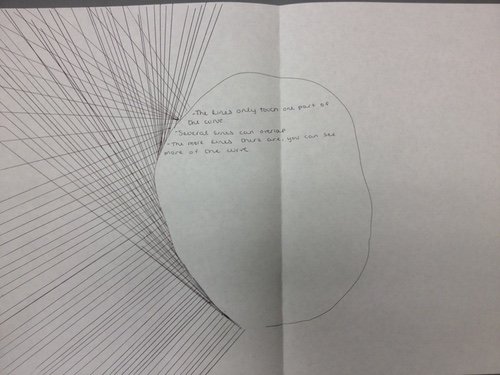 -The lines only touch one part of
the curve.
-Several lines can overlap
-The more lines there are, you can see
more of the curve